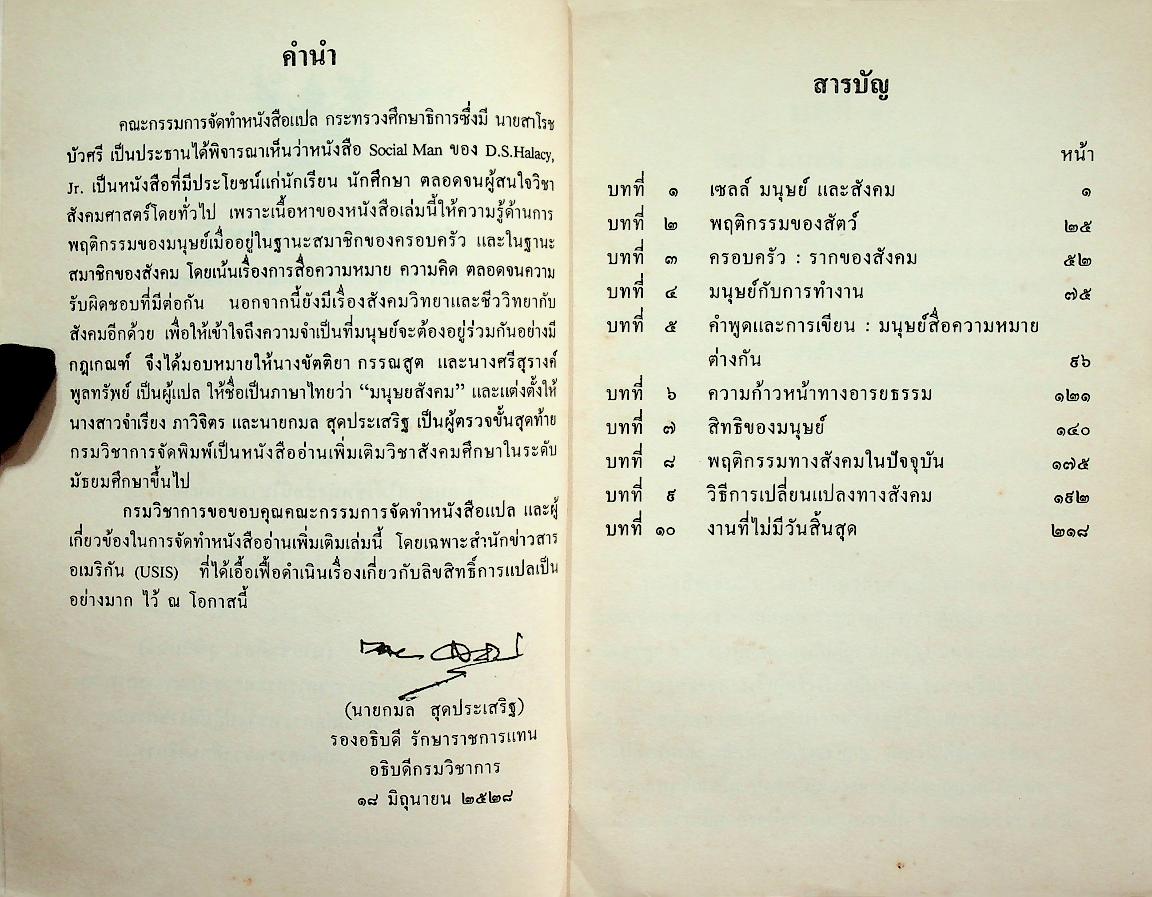 คำนำ
คณะกรรมการจัดทำหนังสือแปล กระทรวงศึกษาธิการซึ่งมี นายสาโรช
บัวศรี เป็นประธานได้พิจารณาเห็นว่าหนังสือ Social Man ของ D.S.Halacy,
Jr. เป็นหนังสือที่มีประโยชน์แก่นักเรียน นักศึกษา ตลอดจนผู้สนใจวิชา
สังคมศาสตร์โดยทั่วไป เพราะเนื้อหาของหนังสือเล่มนี้ให้ความรู้ด้านการ
พฤติกรรมของมนุษย์เมื่ออยู่ในฐานะสมาชิกของครอบครัว และในฐานะ
สมาชิกของสังคม โดยเน้นเรื่องการสื่อความหมาย ความคิด ตลอดจนความ
รับผิดชอบที่มีต่อกัน นอกจากนี้ยังมีเรื่องสังคมวิทยาและชีววิทยากับ
สังคมอีกด้วย เพื่อให้เข้าใจถึงความจำเป็นที่มนุษย์จะต้องอยู่ร่วมกันอย่างมี
กฎเกณฑ์ จึงได้มอบหมายให้นางขัตติยา กรรณสูต และนางศรีสุรางค์
พูลทรัพย์ เป็นผู้แปล ให้ชื่อเป็นภาษาไทยว่า “มนุษยสังคม” และแต่งตั้งให้
นางสาวจำเรียง ภาวิจิตร และนายกมล สุดประเสริฐ เป็นผู้ตรวจขั้นสุดท้าย
กรมวิชาการจัดพิมพ์เป็นหนังสืออ่านเพิ่มเติมวิชาสังคมศึกษาในระดับ
มัธยมศึกษาขึ้นไป
กรมวิชาการขอขอบคุณคณะกรรมการจัดทำหนังสือแปล และผู้
เกี่ยวข้องในการจัดทำหนังสืออ่านเพิ่มเติมเล่มนี้ โดยเฉพาะสำนักข่าวสาร
อเมริกัน (USIS) ที่ได้เอื้อเฟื้อดำเนินเรื่องเกี่ยวกับลิขสิทธิ์การแปลเป็น
อย่างมาก ไว้ ณ โอกาสนี้
(นายกมล สุดประเสริฐ)
รองอธิบดี รักษาราชการแทน
อธิบดีกรมวิชาการ
๑๘ มิถุนายน ๒๕๒๘
สารบัญ
หน้า
บทที่ ๑ เซลล์ มนุษย์ และสังคม ๑
บทที่ ๒ พฤติกรรมของสัตว์ ๒๕
บทที่ ๓ ครอบครัว : รากของสังคม ๕๒
บทที่ ๔ มนุษย์กับการทำงาน ๗๕
บทที่ ๕ คำพูดและการเขียน : มนุษย์สื่อความหมาย
ต่างกัน ๙๖
บทที่ ๖ ความก้าวหน้าทางอารยธรรม ๑๒๑
บทที่ ๗ สิทธิของมนุษย์ ๑๔๐
บทที่ ๘ พฤติกรรมทางสังคมในปัจจุบัน ๑๗๕
บทที่ ๙ วิธีการเปลี่ยนแปลงทางสังคม ๑๙๒
บทที่ ๑๐ งานที่ไม่มีวันสิ้นสุด ๒๑๘